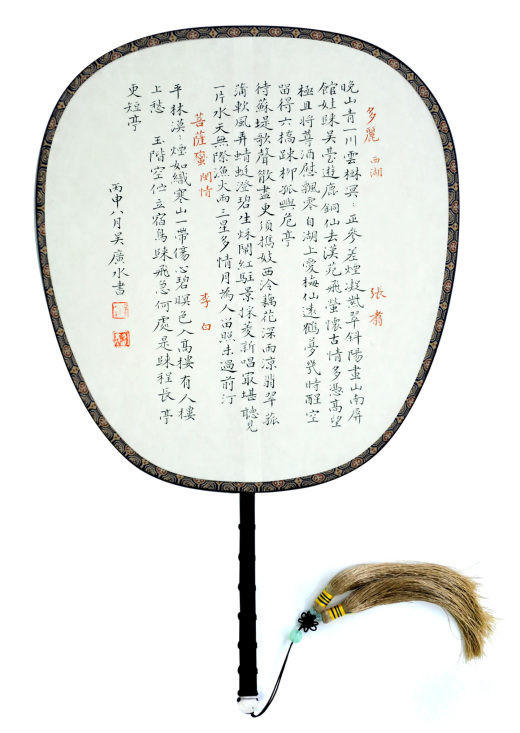 多麗 西湖 張翥
晚山青一川雲樹冥〻正參差煙凝翠斜陽畫山南屏
館娃歸吴臺遊鹿銅仙去漢苑飛螢懷古情多憑高望
極且將尊酒慰飄零自湖上愛梅仙遠鶴夢幾時醒空
留得六橋踈柳孤嶼危亭
待蘇堤歌聲散盡更須攜妓西泠藕花深雨涼翡翠菰
蒲軟風弄蜻蜓澄碧生秋閙紅駐景採菱新唱最堪聽見
一片水天無際漁火兩三星多情月為人留照未過前汀
菩薩蠻 閨情 李白
平林漠〻煙如織寒山一帶傷心碧暝色入高樓有人樓
上愁 玉階空佇立宿鳥歸飛急何處是歸程長亭
更短亭
丙申八月吴廣水書